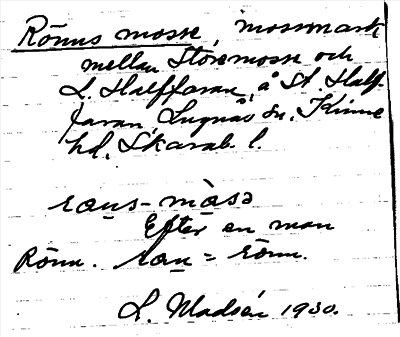 Rönns mosse, mossmark
mellan Storemosse och
L. Halffaran, å St. Half-
faran, Lugnås sn, Kinne
hd, Skarab. l.
raus-màsə
Efter en man
Rönn. rau = rönn.
L. Madsén 1930.